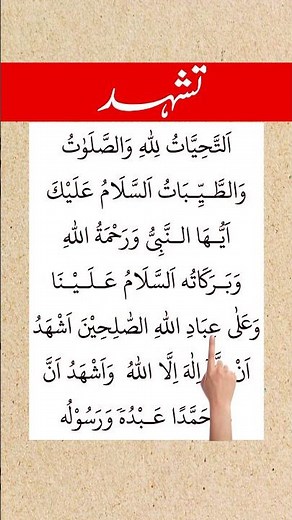 تشہد
اَلتَّحِيَّاتُ لِلّٰهِ وَالصَّلَوٰتُ
وَالطَّيِّبَاتُ اَلسَّلَامُ عَلَيْكَ
اَيُّهَا النَّبِيُّ وَرَحْمَةُ اللهِ
وَبَرَكَاتُه اَلسَّلَامُ عَلَيْنَا
وَعَلٰى عِبَادِ اللهِ الصّٰلِحِيْنَ اَشْهَدُ
اَنْ اِلٰهَ اِلَّا اللهُ وَاَشْهَدُ اَنَّ
عَبْدُهٗ وَرَسُوْلُه